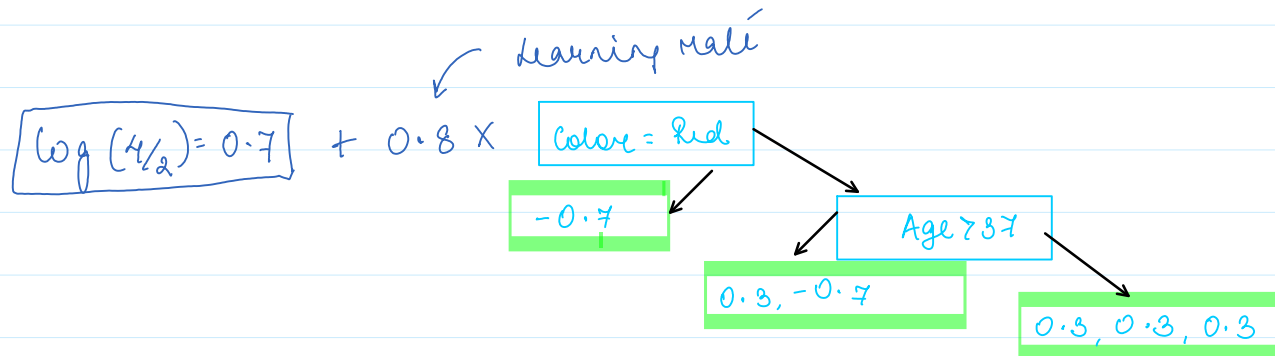 Learning rate
log (4/2) = 0.7 + 0.8 X Color = Red
-0.7
Age > 37
0.3, -0.7
0.3, 0.3, 0.3